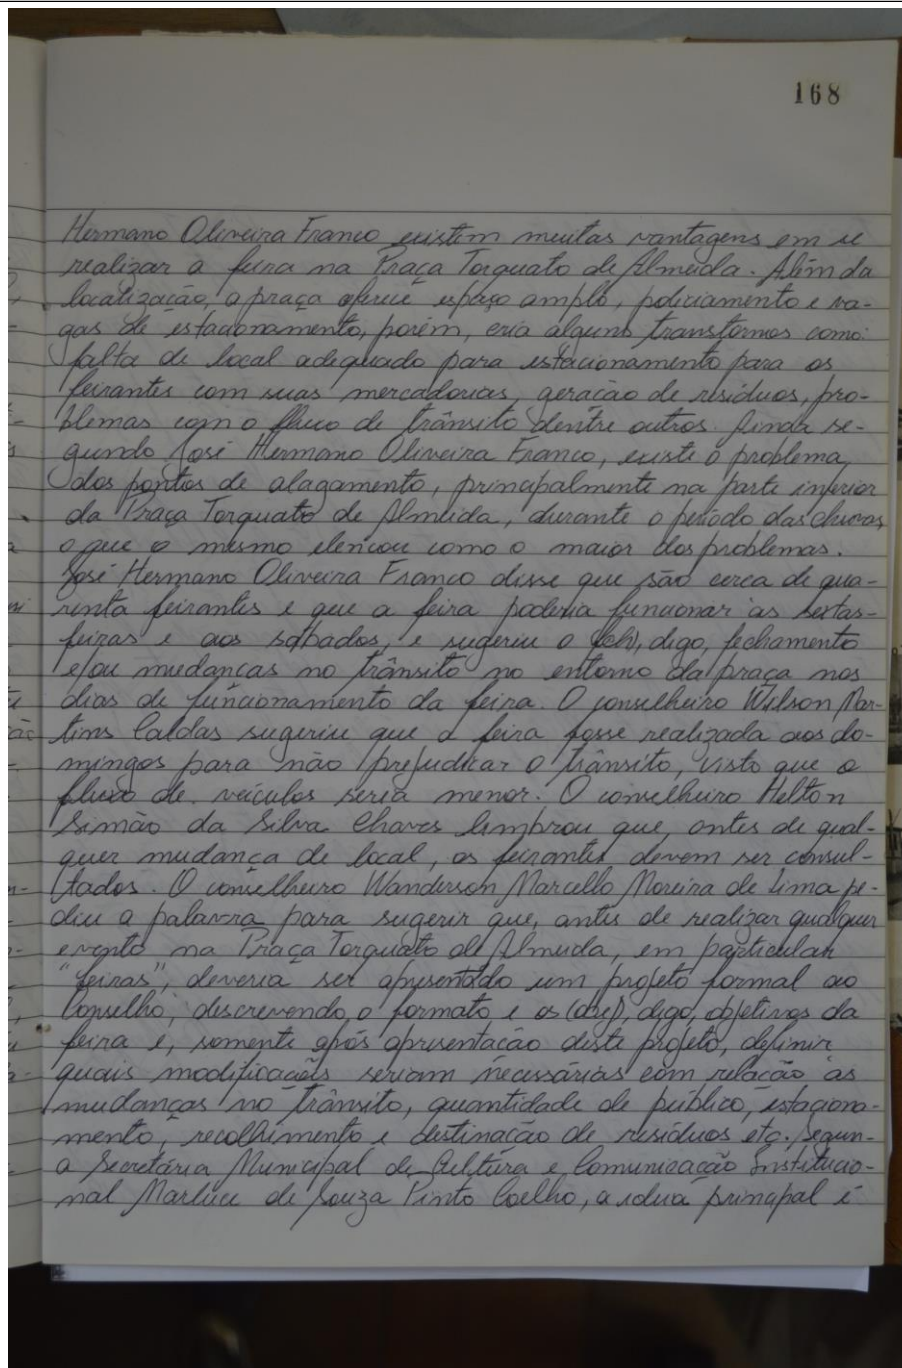 168
Hermano Oliveira Franco existem muitas vantagens em se
realizar a feira na Praça Torquato de Almeida. Além da
localização, a praça oferece espaço amplo, policiamento e va-
gas de estacionamento, porém, cria alguns transtornos como:
falta de local adequado para estacionamento para os
feirantes com suas mercadorias, geração de resíduos, pro-
blemas com o fluxo de trânsito dentre outros. Ainda se-
gundo José Hermano Oliveira Franco, existe o problema
dos pontos de alagamento, principalmente na parte inferior
da Praça Torquato de Almeida, durante o período das chuvas,
o que o mesmo elencou como o maior dos problemas.
José Hermano Oliveira Franco disse que são cerca de qua-
renta feirantes e que a feira poderia funcionar às sextas-
feiras e aos sábados, e sugeriu o (feh), digo, fechamento
e/ou mudanças no trânsito no entorno da praça nos
dias de funcionamento da feira. O conselheiro Wilson Mar-
tins Caldas sugeriu que a feira fosse realizada aos do-
mingos para não prejudicar o trânsito, visto que o
fluxo de veículos seria menor. O conselheiro Helton
Simão da Silva Chaves lembrou que, antes de qual-
quer mudança de local, os feirantes devem ser consul-
tados. O conselheiro Wanderson Marcello Moreira de Lima pe-
diu a palavra para sugerir que, antes de realizar qualquer
evento na Praça Torquato de Almeida, em particular
"feiras", deveria ser apresentado um projeto formal ao
Conselho, descrevendo o formato e os digo, objetivos da
feira e, somente após apresentação deste projeto, definir
quais modificações seriam necessárias com relação às
mudanças no trânsito, quantidade de público, estaciona-
mento, recolhimento e destinação de resíduos etc. Segun-
a Secretária Municipal de Cultura e Comunicação Institucio-
nal Marluce de Souza Pinto Coelho, a ideia principal é